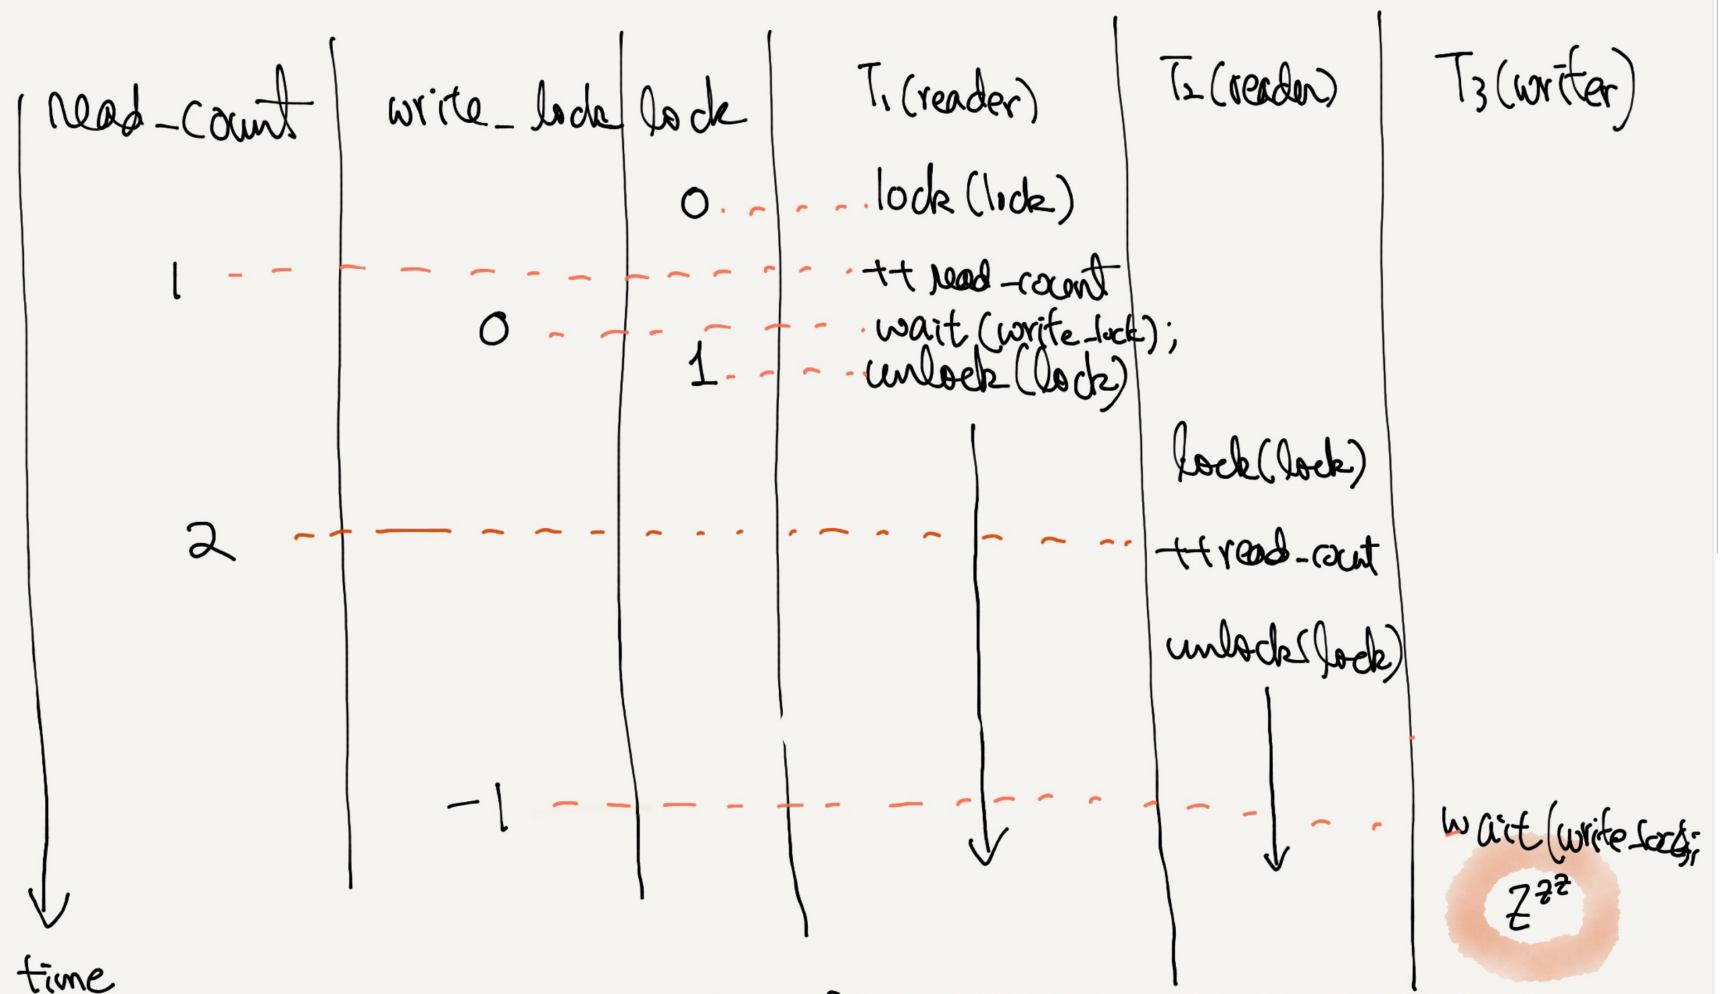 read_count write_lock lock T1(reader) T2(reader) T3(writer)
0 lock(lock)
1 ++ read_count
0 wait(write_lock);
1 unlock(lock)
lock(lock)
2 ++read_count
unlock(lock)
-1 wait(write_lock);
Zzz
time